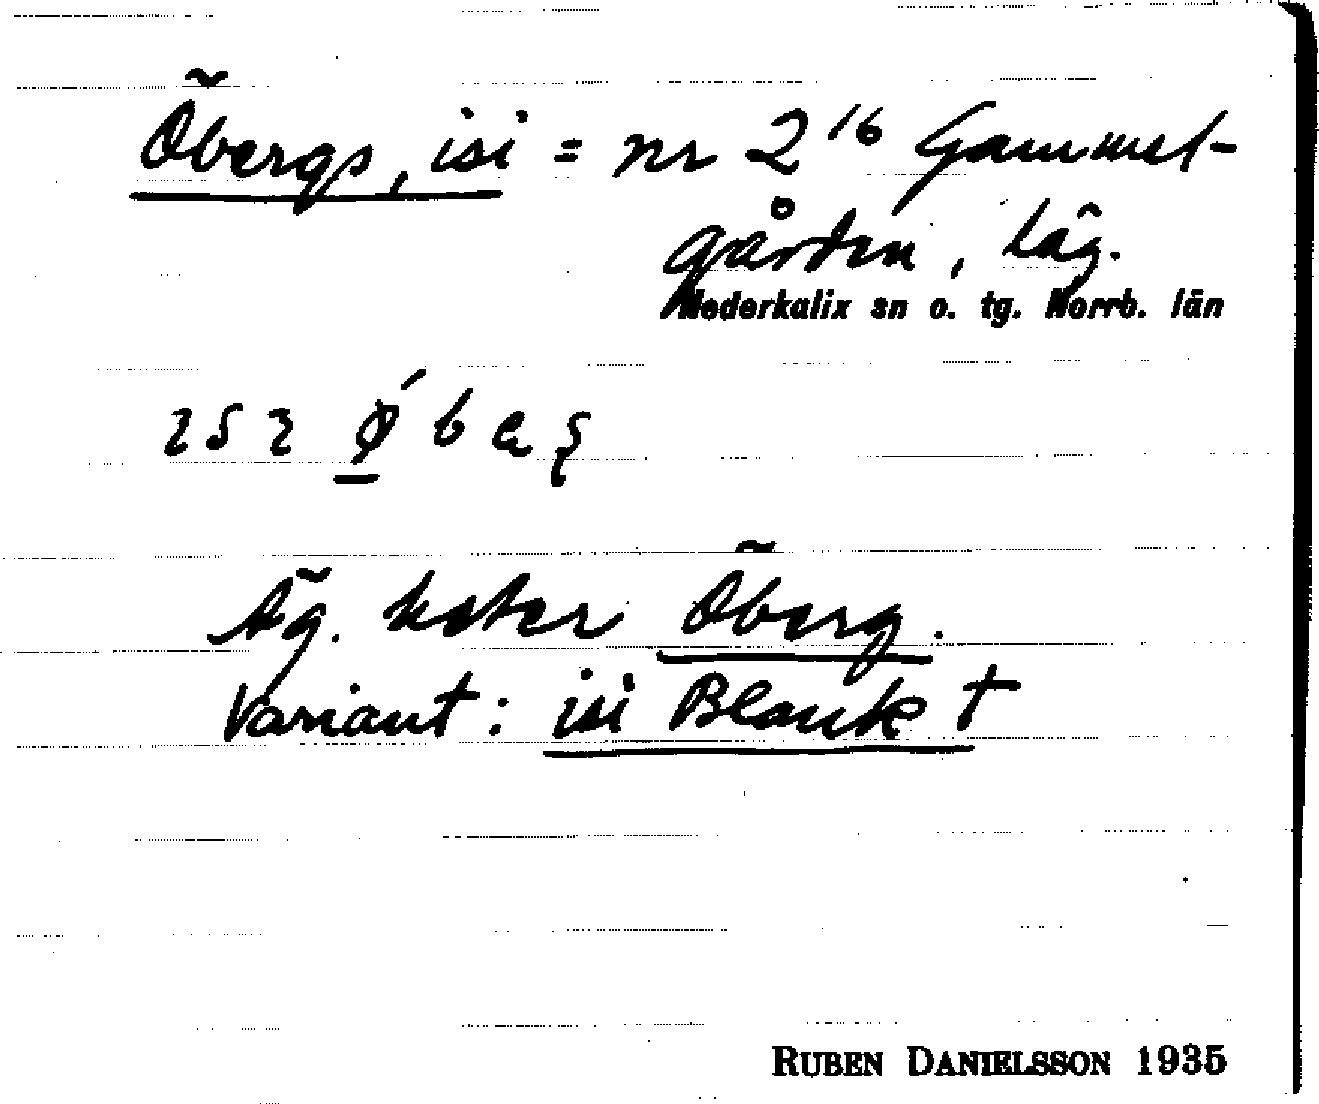 Öbergs, isi = nr 2¹⁶ Gammel-
gården, Läg.
Nederkalix sn o. tg. Norrb. län
Äg. heter Öberg.
Variant: isi Blank †
RUBEN DANIELSSON 1935